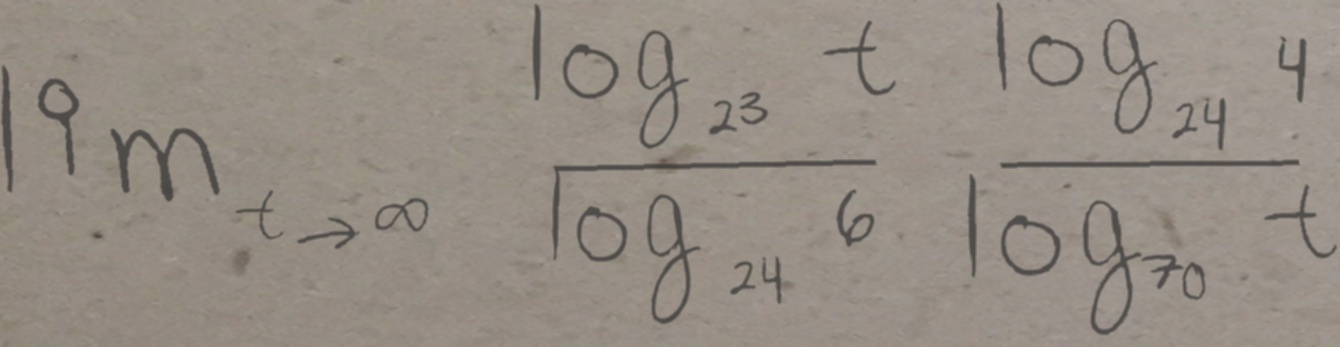 lim_{t→∞} \frac{log_{23} t}{log_{24} 6} \frac{log_{24} 4}{log_{70} t}